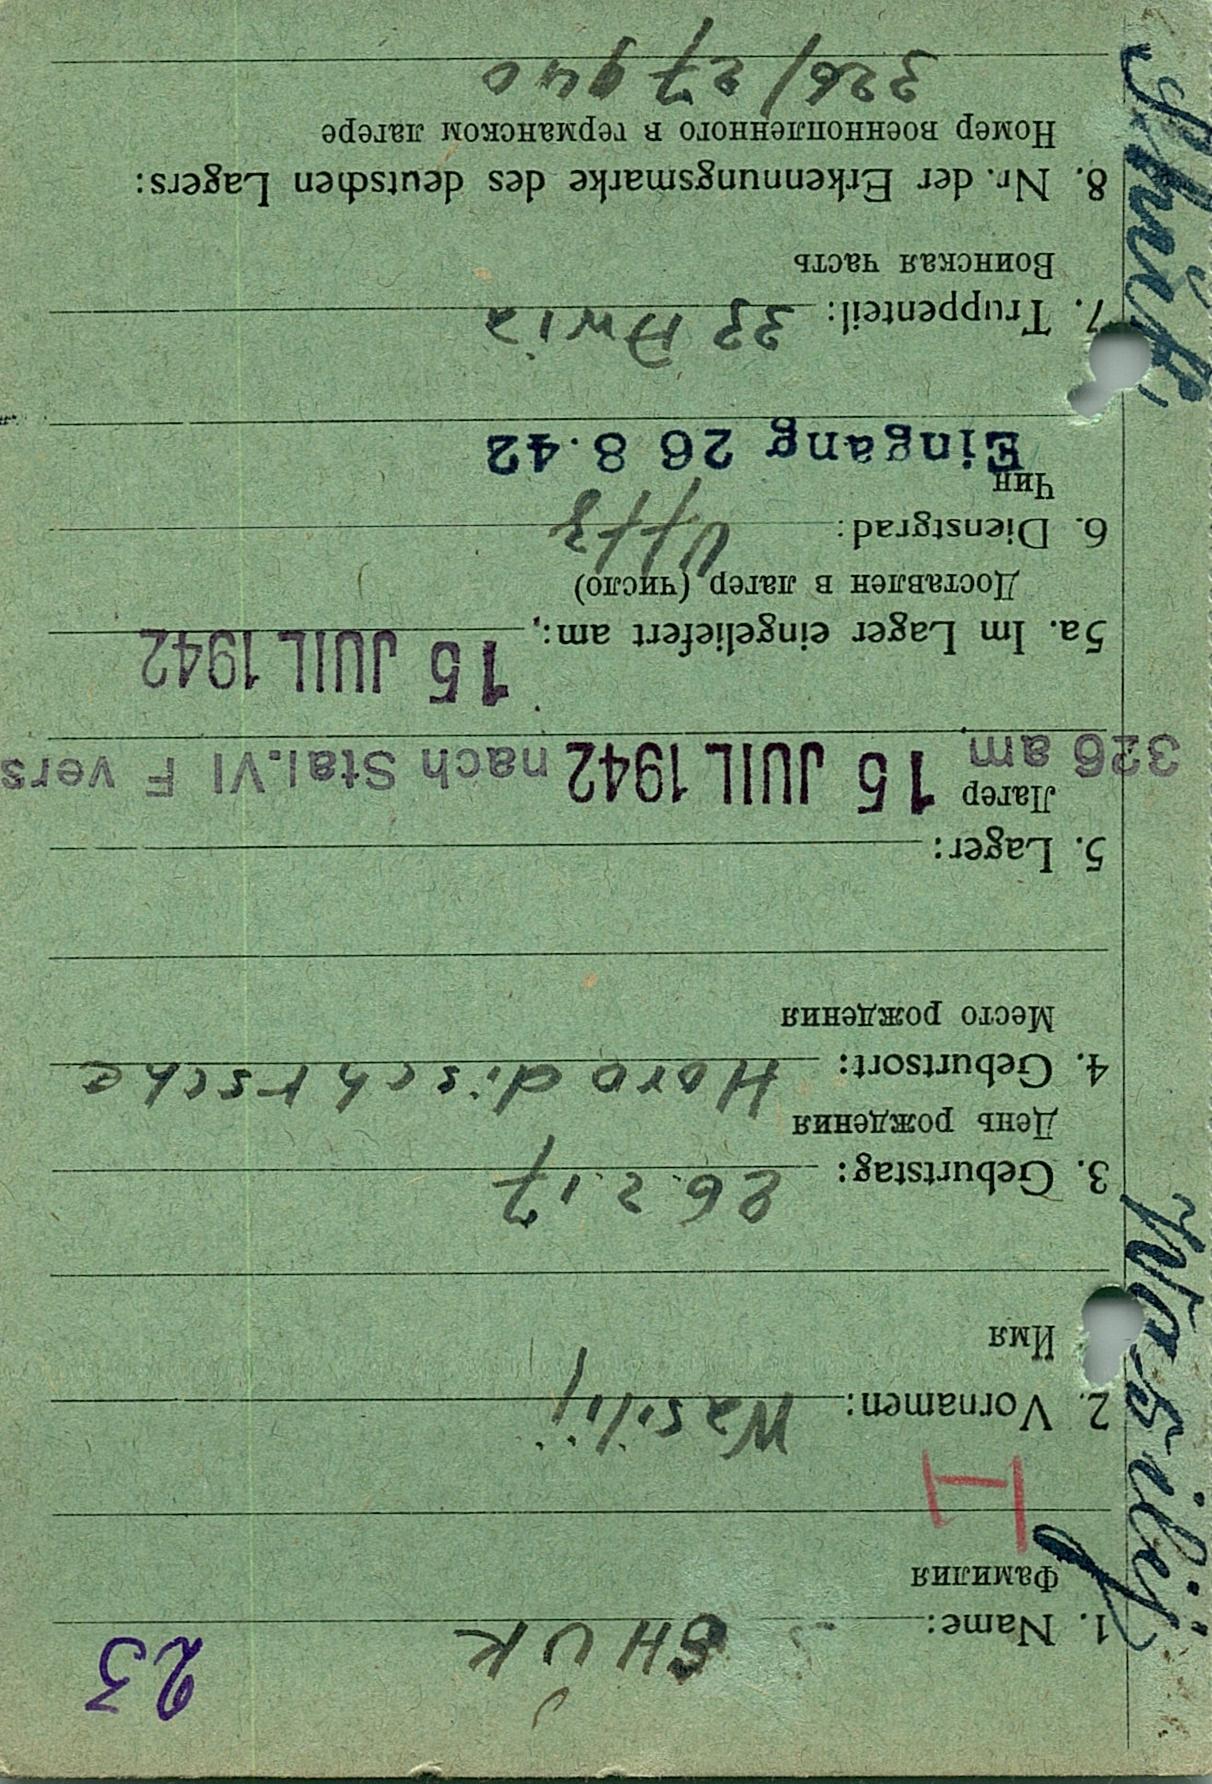 23
1. Name: SHUK
Фамилия
2. Vornamen: Wasilij
Имя
3. Geburtstag: 26.2.17
День рождения
4. Geburtsort: Horodischtsche
Место рождения
5. Lager:
Лагер
326 am 15 JUIL 1942 nach Stal. VI F vers
5a. Im Lager eingeliefert am: 15 JUIL 1942
Доставлен в лагер (число)
6. Dienstgrad: Uffz
Чин
Eingang 26 8.42
7. Truppenteil: 33
Воинская часть
8. Nr. der Erkennungsmarke des deutschen Lagers:
Номер военнопленного в германском лагере
326/27940
Wassilij